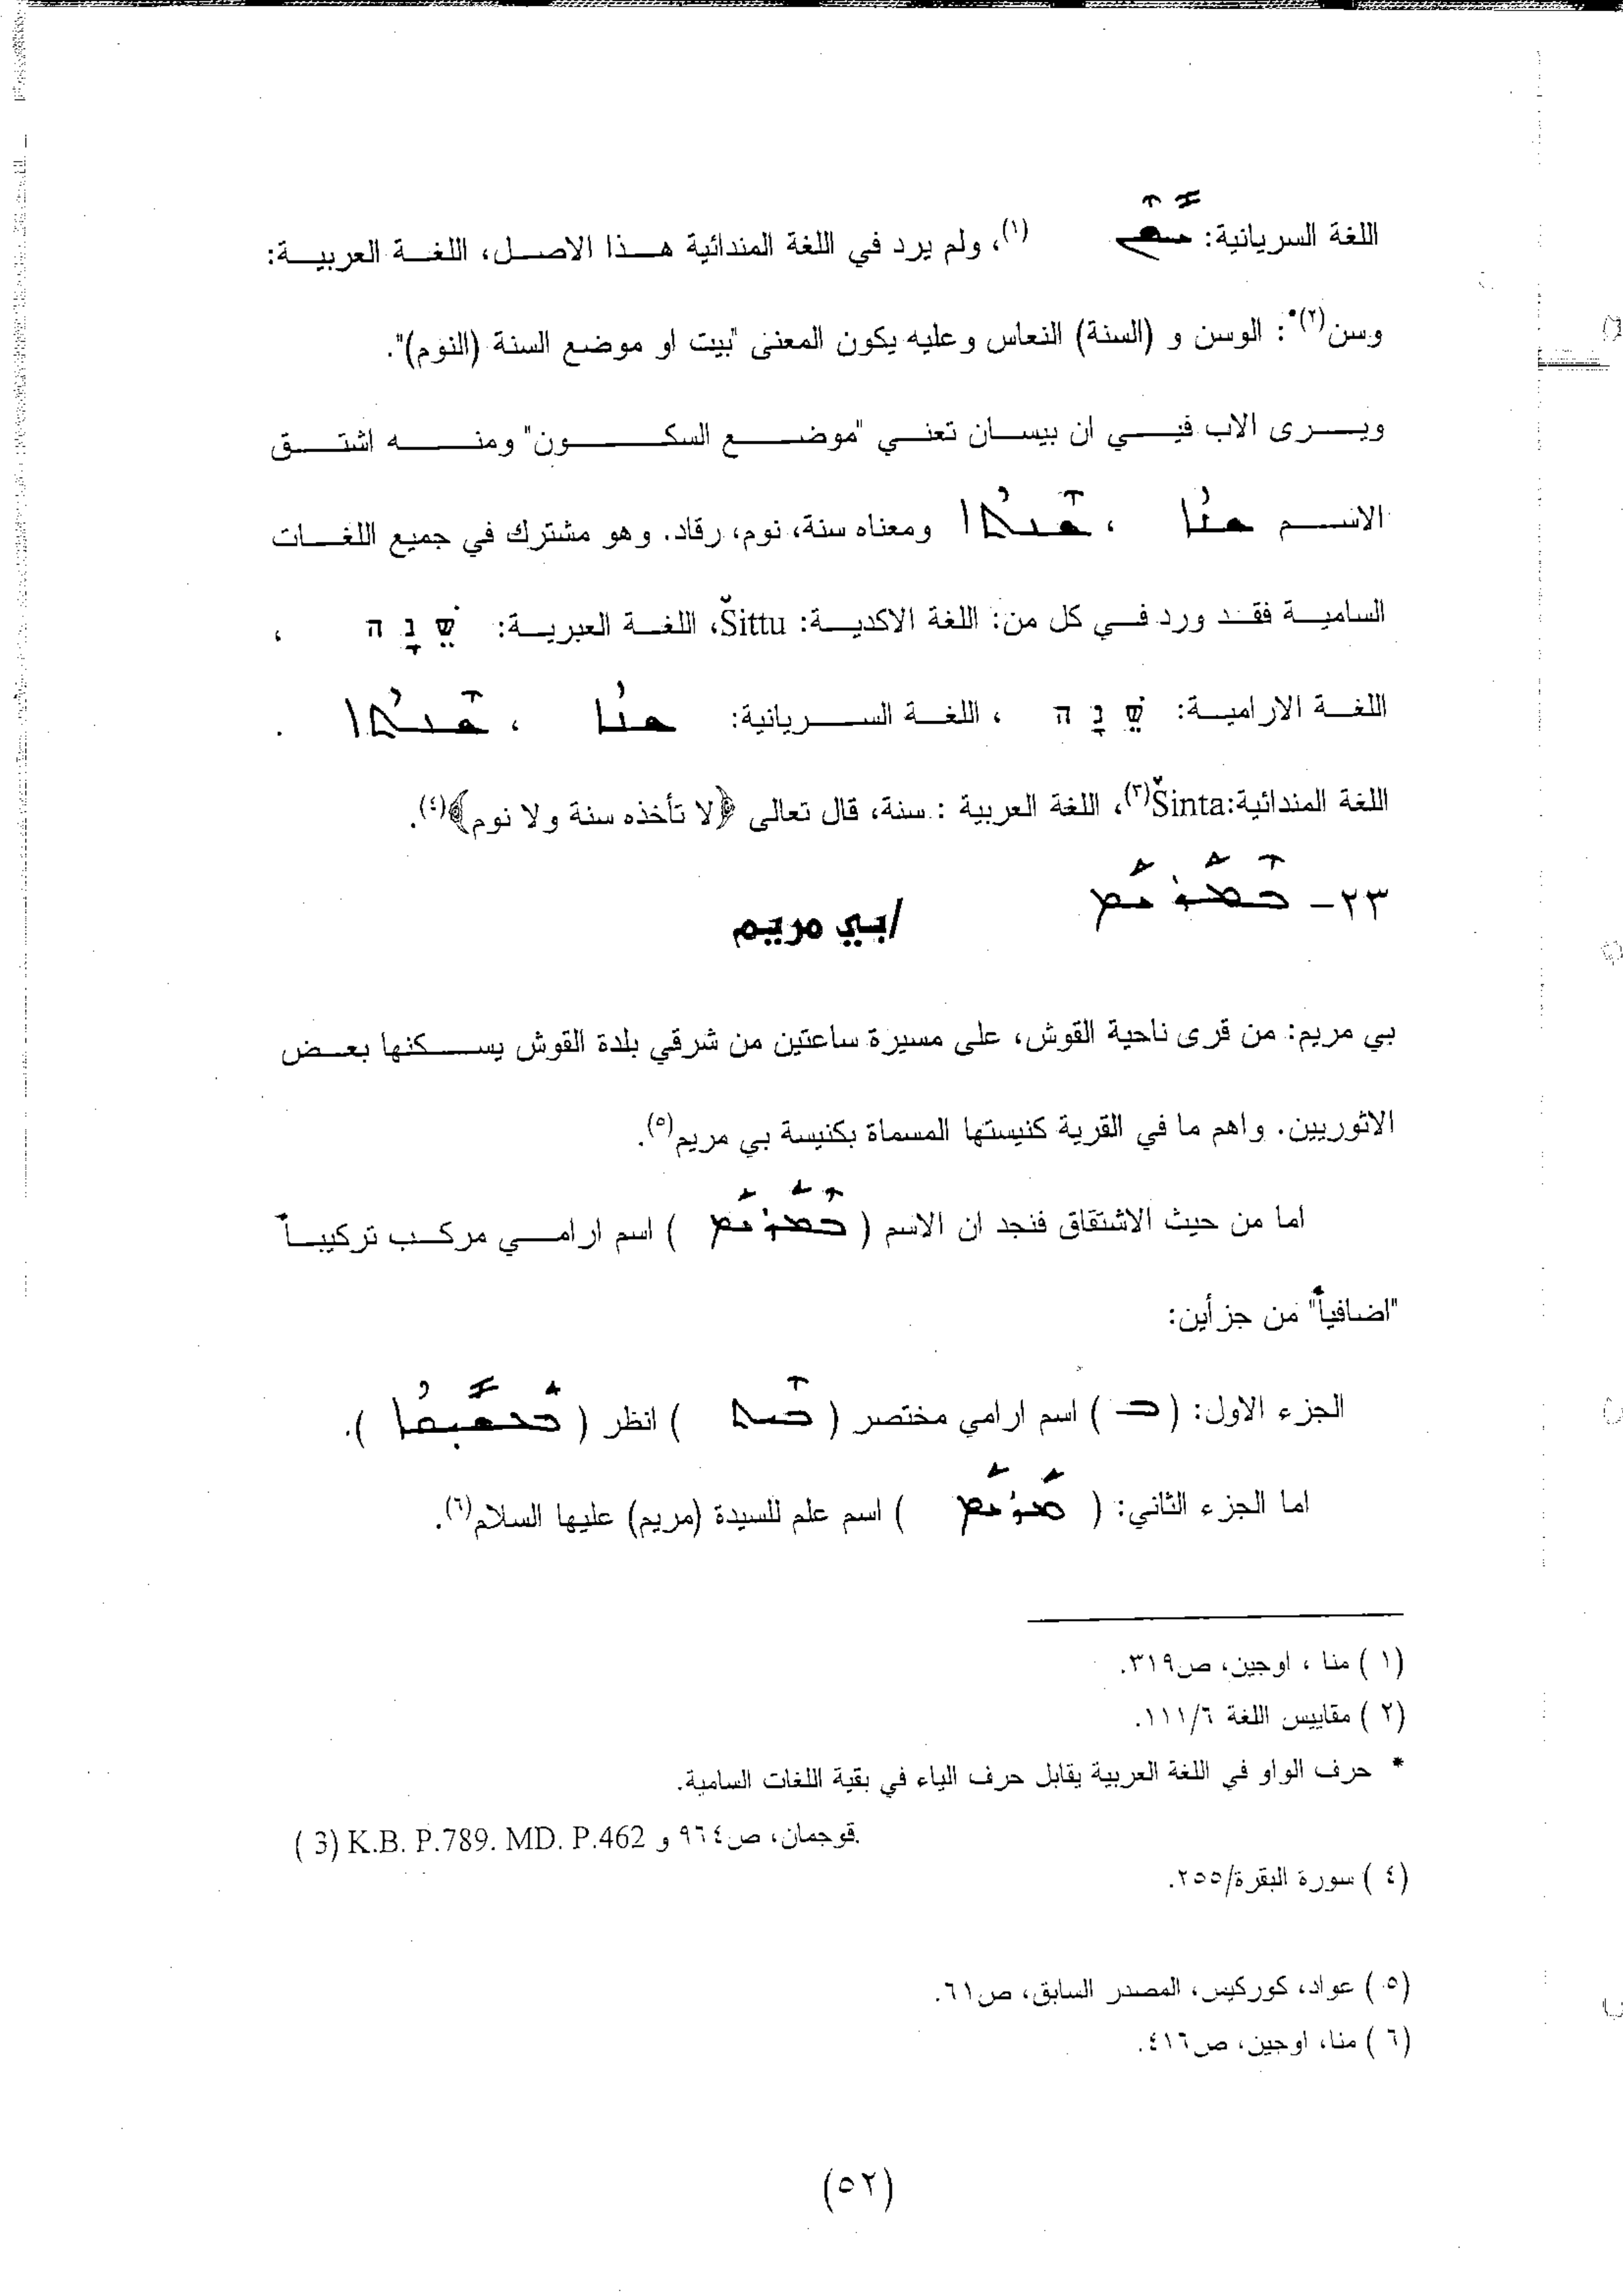 اللغة السريانية: (١)، ولم يرد في اللغة المندائية هذا الاصل، اللغة العربية:
وسن(٢)*: الوسن و (السنة) النعاس وعليه يكون المعنى "بيت او موضع السنة (النوم)".
ويرى الاب فيي ان بيسان تعني "موضع السكون" ومنه اشتق
الاسم ܫܢܐ ، ܫܢܬܐ ومعناه سنة، نوم، رقاد. وهو مشترك في جميع اللغات
السامية فقد ورد في كل من: اللغة الاكدية: Šittu، اللغة العبرية: שֵׁנָה ،
اللغة الارامية: שֵׁנָה ، اللغة السريانية: ܫܢܐ ، ܫܢܬܐ .
اللغة المندائية:Šinta(٣)، اللغة العربية : سنة، قال تعالى ﴿لا تأخذه سنة ولا نوم﴾(٤).
٢٣- ܒܡܪܝܡ /بي مريم
بي مريم: من قرى ناحية القوش، على مسيرة ساعتين من شرقي بلدة القوش يسكنها بعض
الاثوريين. واهم ما في القرية كنيستها المسماة بكنيسة بي مريم(٥).
اما من حيث الاشتقاق فنجد ان الاسم ( ܒܡܪܝܡ ) اسم ارامي مركب تركيباً
"اضافياً" من جزأين:
الجزء الاول: ( ܒ ) اسم ارامي مختصر ( ܒܝܬ ) انظر ( ).
اما الجزء الثاني: ( ܡܪܝܡ ) اسم علم للسيدة (مريم) عليها السلام(٦).
(١) منا ، اوجين، ص٣١٩.
(٢) مقاييس اللغة ١١١/٦.
* حرف الواو في اللغة العربية يقابل حرف الياء في بقية اللغات السامية.
( 3) K.B. P.789. MD. P.462 قوجمان، ص٩٦٤ و.
(٤) سورة البقرة/٢٥٥.
(٥) عواد، كوركيس، المصدر السابق، ص٦١.
(٦) منا، اوجين، ص٤١٦.
(٥٢)